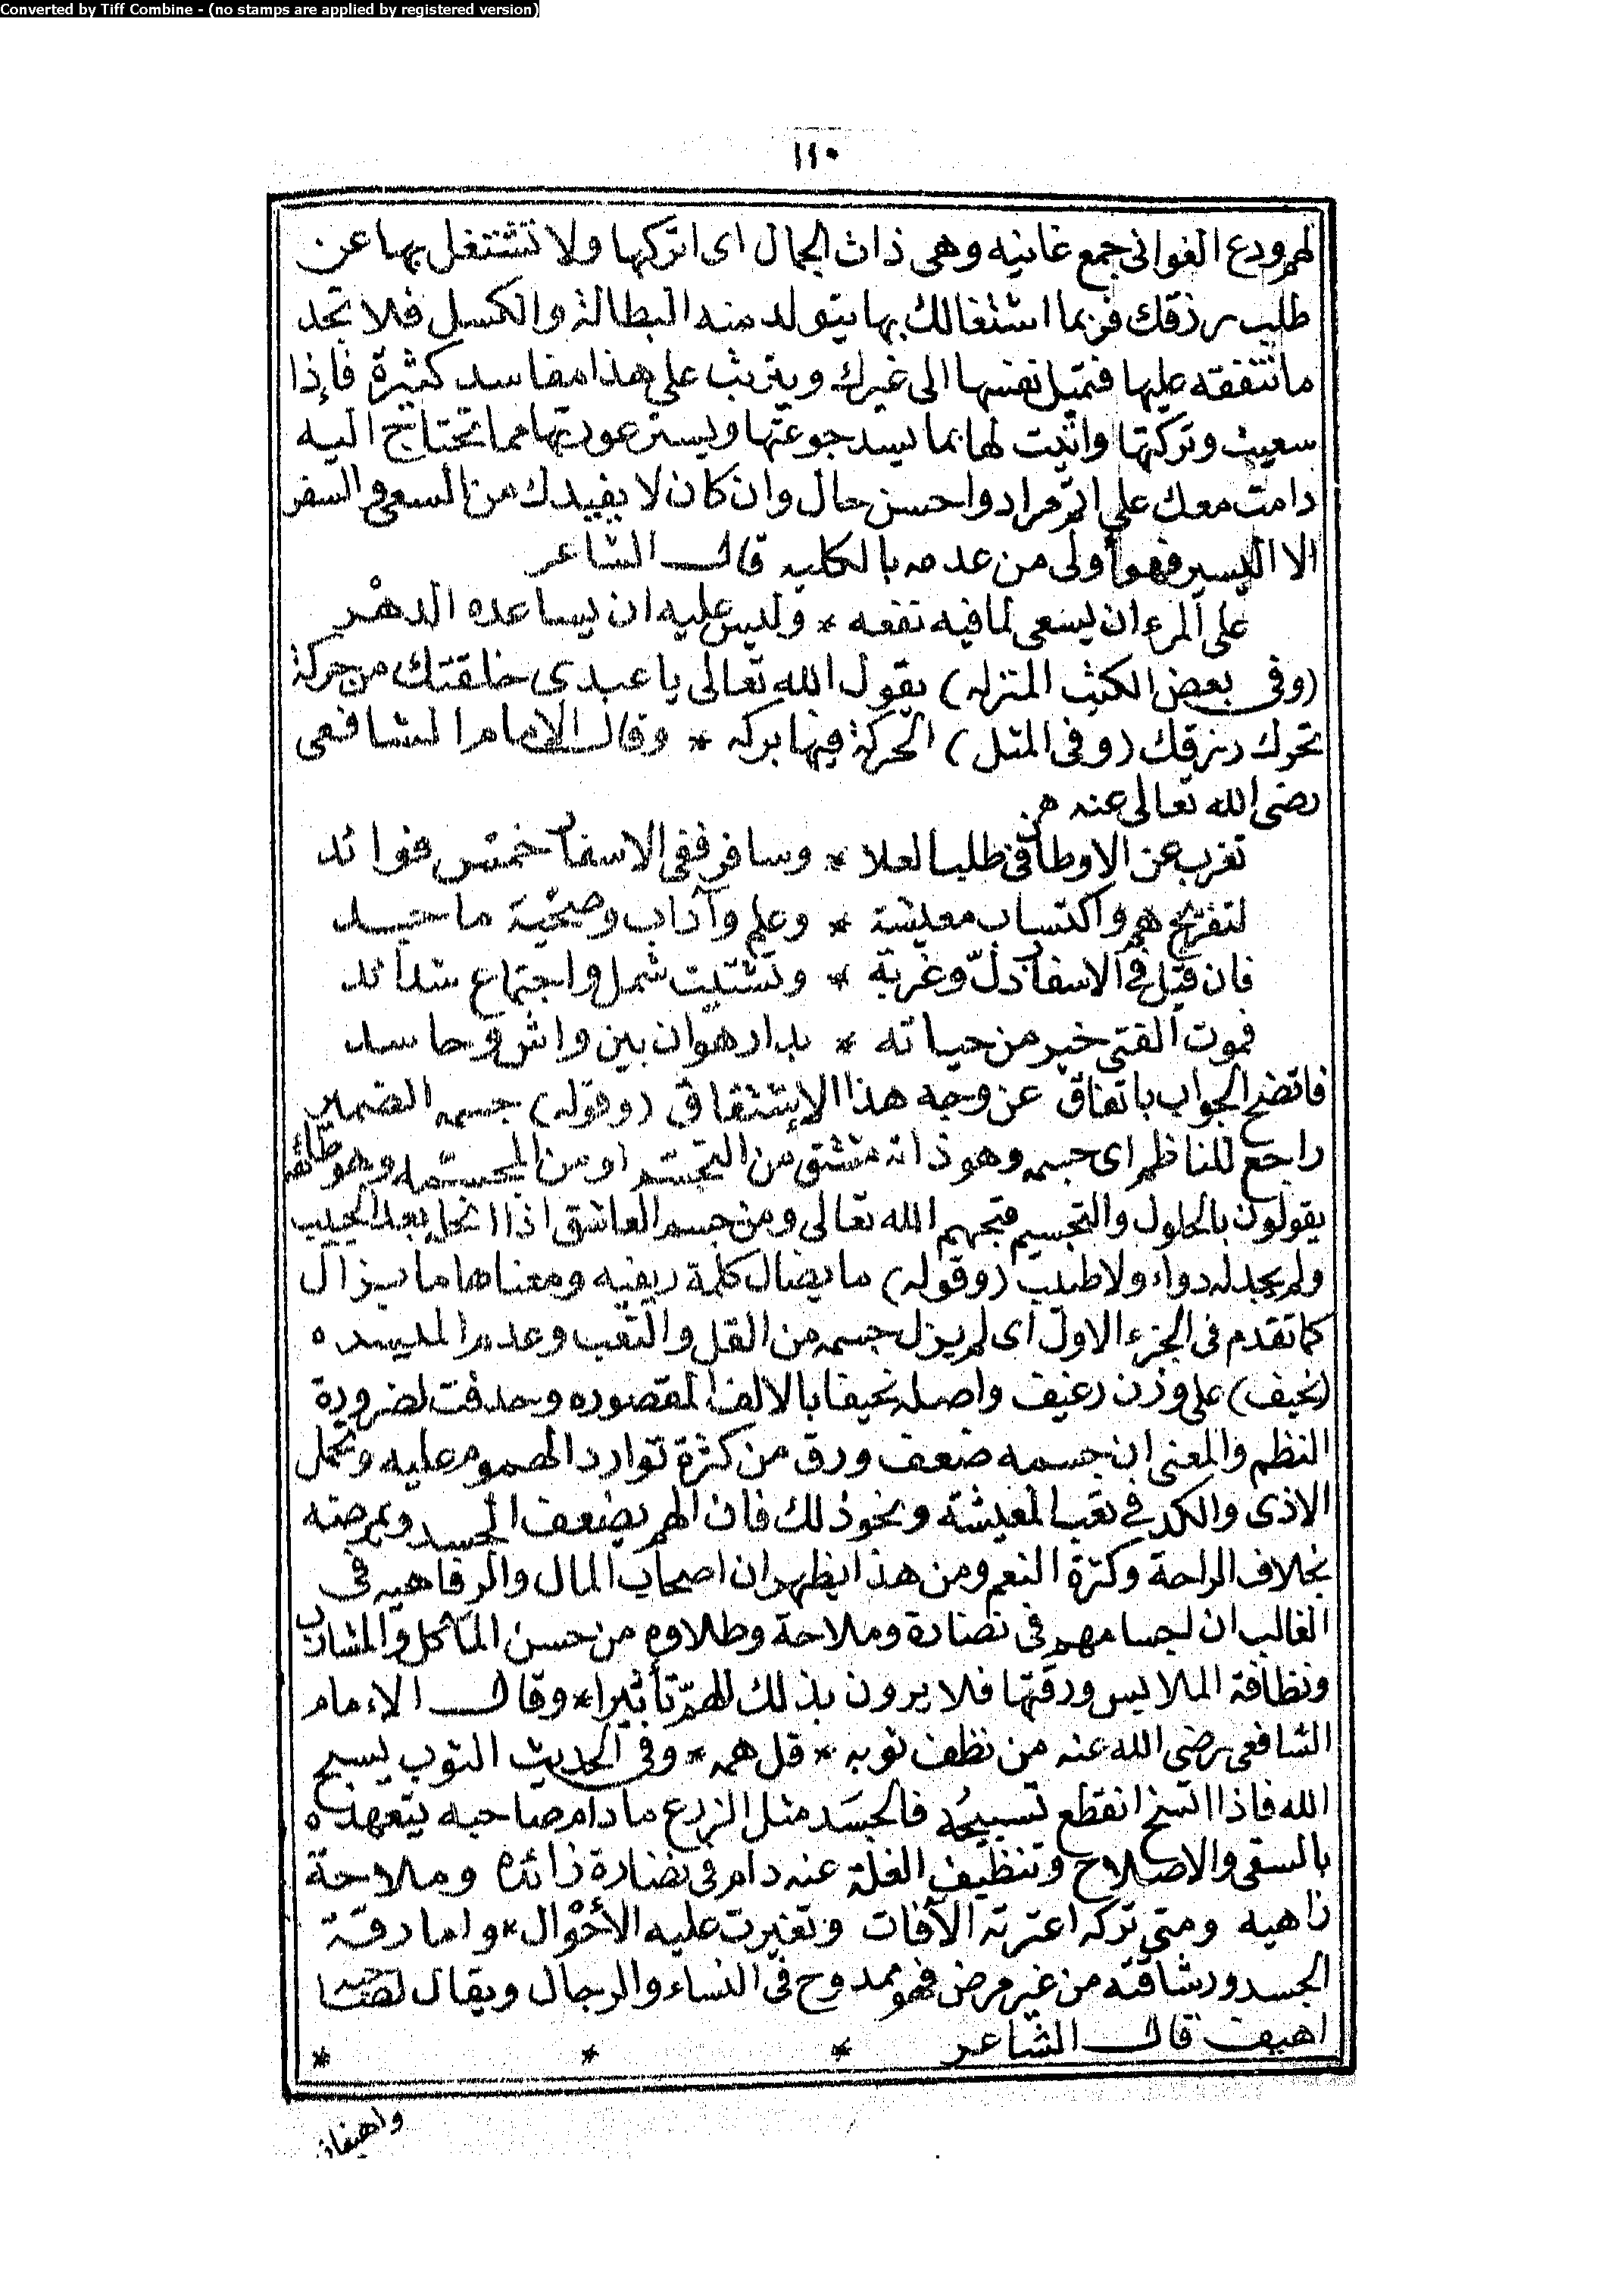 Converted by Tiff Combine - (no stamps are applied by registered version)
١١٠
لهم ودع الغوانى جمع غانيه وهى ذات الجمال اى اتركها ولا تشتغل بها عن
طلب رزقك فربما اشتغالك بها يتولد منه البطالة والكسل فلا تجد
ما تنفقه عليها فتميل نفسها الى غيرك ويترتب على هذا مفاسد كثيرة فإذا
سعيت وتركتها واتيت لها بما يسد جوعتها ويستر عورتها مما تحتاج اليه
دامت معك على اتم مراد واحسن حال وان كان لا يفيدك من السعى والسفر
الا اليسير فهو أولى من عدمه بالكليه قال الشاعر
على المرء ان يسعى لما فيه نفعه * وليس عليه ان يساعده الدهْر
(وفى بعض الكتب المنزله) يقول الله تعالى يا عبدى خلقتك من حركة
تحرك ارزقك (وفى المثل) الحركة فيها بركه * وقال الامام الشافعى
رضى الله تعالى عنه
تغرب عن الاوطان فى طلب العلا * وسافر ففى الاسفار خمس فوائد
لتفريج هم واكتساب معيشة * وعلم وآداب وصحبة ماجد
فان قيل فى الاسفار ذلّ وغربة * وتشتيت شمل واجتماع شدائد
فموت الفتى خير من حياته * بدار هوان بين واش وحاسد
فاتضح الجواب باتفاق عن وجه هذا الإشتقاق (وقوله) جسمه الضمير
راجع للناظم اى جسمه وهو ذاته مشتق من التجسّم او من المجسّمه وهو طائفه
يقولون بالحلول والتجسيم قبحهم الله تعالى ومن جسم العاشق اذا انحل بعد الحبيب
ولم يجد له دواء ولا طبيب (وقوله) ما يضال كلمة ريفيه ومعناها ما يزال
كما تقدم فى الجزء الاول اى لم يزل جسمه من القل والتعب وعدم الميسره
(نحيف) على وزن رغيف واصله نحيفا بالالف المقصوره وحذفت لضرورة
النظم والمعنى ان جسمه ضعف ورق من كثرة توارد الهموم عليه وتحمل
الاذى والكد فى تعب المعيشة ونحو ذلك فان الهم يضعف الجسد ويمرضه
بخلاف الراحة وكثرة النعم ومن هذا يظهر ان اصحاب المال والرفاهيه فى
الغالب ان اجسامهم فى نضارة وملاحة وطلاوه من حسن المآكل والمشارب
ونظافة الملابس ورقتها فلا يرون بذلك للهمّ تأثيرا * وقال الإمام
الشافعى رضى الله عنه من نظف ثوبه * قل همه * وفى الحديث الثوب يسبح
الله فاذا اتسخ انقطع تسبيحُه فالجسَد مثل الزرع ما دام صاحبه يتعهده
بالسقى والاصلاح وتنظيف الغلة عنه دام فى نضارة زائده وملاحة
زاهيه ومتى تركه اعترته الآفات وتغيرت عليه الأحْوال * واما رقة
الجسد ورشاقته من غير مرض فهو ممدوح فى النساء والرجال ويقال لصاحبه
اهيف قال الشاعر * * *
واهيفان